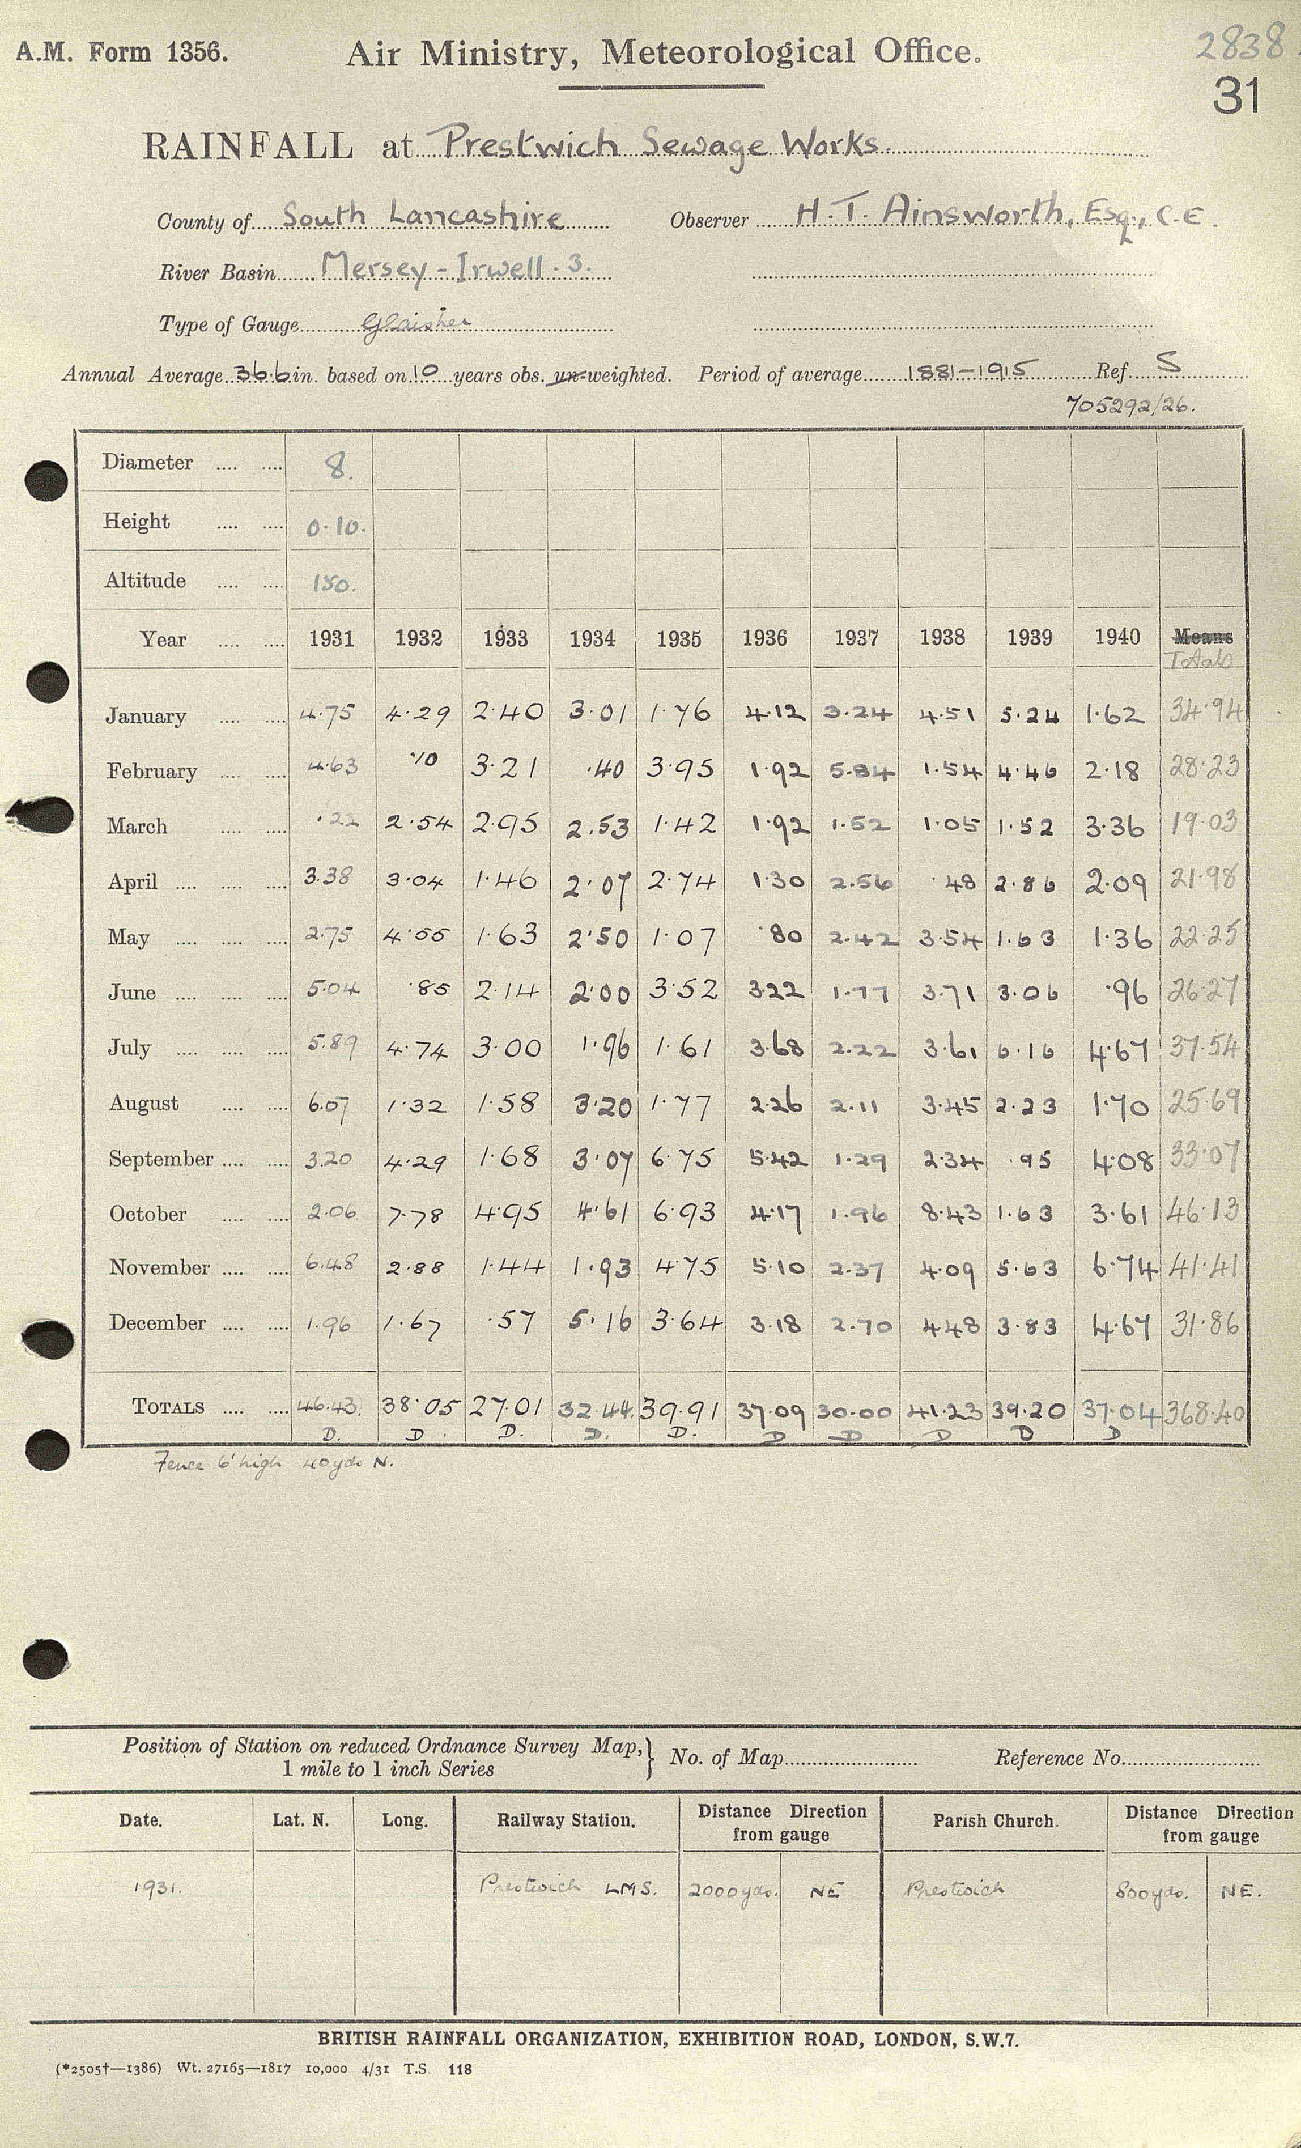 2838
A.M. Form 1356. Air Ministry, Meteorological Office.
31
RAINFALL at Prestwich Sewage Works.
County of South Lancashire Observer H. T. Ainsworth, Esq., C.E.
River Basin Mersey - Irwell. 3.
Type of Gauge Glaisher
Annual Average 36.6 in. based on 10 years obs. un-weighted. Period of average 1881-1915 Ref. S
705292/26.
Diameter .... .... 8.
Height .... .... 0.10.
Altitude .... .... 150.
Year .... .... 1931 1932 1933 1934 1935 1936 1937 1938 1939 1940 Means
Totals
January .... .... 4.75 4.29 2.40 3.01 1.76 4.12 3.24 4.51 5.24 1.62 34.94
February .... .... 4.63 .10 3.21 .40 3.95 1.92 5.84 1.54 4.46 2.18 28.23
March .... .... .22 2.54 2.95 2.53 1.42 1.92 1.52 1.05 1.52 3.36 19.03
April .... .... .... 3.38 3.04 1.46 2.07 2.74 1.30 2.56 .48 2.86 2.09 21.98
May .... .... .... 2.75 4.55 1.63 2.50 1.07 .80 2.42 3.54 1.63 1.36 22.25
June .... .... .... 5.04 .85 2.14 2.00 3.52 3.22 1.77 3.71 3.06 .96 26.27
July .... .... .... 5.89 4.74 3.00 1.96 1.61 3.68 2.22 3.61 6.16 4.67 37.54
August .... .... 6.07 1.32 1.58 3.20 1.77 2.26 2.11 3.45 2.23 1.70 25.69
September .... .... 3.20 4.29 1.68 3.07 6.75 5.42 1.29 2.34 .95 4.08 33.07
October .... .... 2.06 7.78 4.95 4.61 6.93 4.17 1.96 8.43 1.63 3.61 46.13
November .... .... 6.48 2.88 1.44 1.93 4.75 5.10 2.37 4.09 5.63 6.74 41.41
December .... .... 1.96 1.67 .57 5.16 3.64 3.18 2.70 4.48 3.83 4.67 31.86
TOTALS .... .... 46.43. 38.05 27.01 32.44. 39.91 37.09 30.00 41.23 39.20 37.04 368.40
D. D. D. D. D. D D D D D
Fence 6' high 40 yds N.
Position of Station on reduced Ordnance Survey Map,} No. of Map Reference No.
1 mile to 1 inch Series
Date. Lat. N. Long. Railway Station. Distance Direction from gauge Parish Church. Distance Direction from gauge
1931. Prestwich LMS. 2000 yds. NE Prestwich 800 yds. NE.
BRITISH RAINFALL ORGANIZATION, EXHIBITION ROAD, LONDON, S.W.7.
(*2505†—1386) Wt. 27165—1817 10,000 4/31 T.S. 118